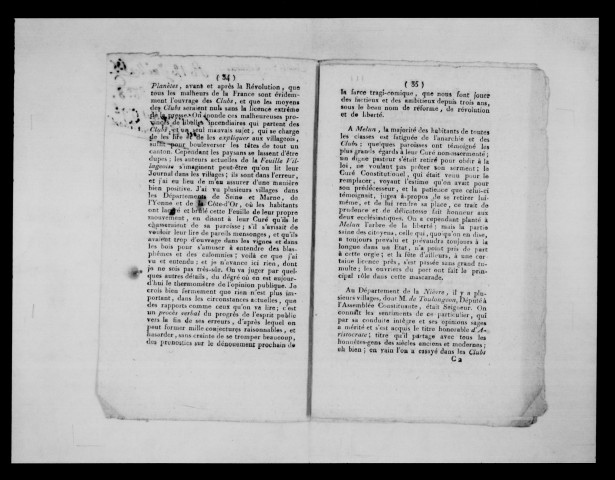 ( 34 )
Planètes, avant et après la Révolution, que
tous les malheurs de la France sont évidem-
ment l'ouvrage des Clubs, et que les moyens
des Clubs seraient nuls sans la licence extrême
de la presse. On inonde ces malheureuses pro-
vinces de libelles incendiaires qui partent des
Clubs, et un seul mauvais sujet, qui se charge
de les lire et de les expliquer aux villageois,
suffit pour bouleverser les têtes de tout un
canton. Cependant les paysans se lassent d'être
dupes; les auteurs actuels de la Feuille Vil-
lageoise s'imaginent peut-être qu'on lit leur
Journal dans les villages; ils sont dans l'erreur,
et j'ai eu lieu de m'en assurer d'une manière
bien positive. J'ai vu plusieurs villages dans
les Départements de Seine et Marne, de
l'Yonne et de la Côte-d'Or, où les habitants
ont lacéré et brûlé cette Feuille de leur propre
mouvement, en disant à leur Curé qu'ils le
chasseraient de sa paroisse; s'il s'avisait de
vouloir leur lire de pareils mensonges, et qu'ils
avaient trop d'ouvrage dans les vignes et dans
les bois pour s'amuser à entendre des blas-
phêmes et des calomnies; voilà ce que j'ai
vu et entendu; et je n'avance ici rien, dont
je ne sois pas très-sûr. On va juger par quel-
ques autres détails, du dégré où en est aujour-
d'hui le thermomètre de l'opinion publique. Je
crois bien fermement que rien n'est plus im-
portant, dans les circonstances actuelles, que
des rapports comme ceux qu'on va lire; c'est
un procès verbal du progrès de l'esprit public
vers la fin de ses erreurs, d'après lequel on
peut former mille conjectures raisonnables, et
hasarder, sans crainte de se tromper beaucoup,
des pronostics sur le dénouement prochain de
( 35 )
la farce tragi-comique, que nous font jouer
des factieux et des ambitieux depuis trois ans,
sous le beau nom de réforme, de révolution
et de liberté.
A Melun, la majorité des habitants de toutes
les classes est fatiguée de l'anarchie et des
Clubs; quelques paroisses ont témoigné les
plus grands égards à leur Curé non-assermenté;
un digne pasteur s'était retiré pour obéir à la
loi, ne voulant pas prêter son serment; le
Curé Constitutionel, qui était venu pour le
remplacer, voyant l'estime qu'on avait pour
son prédécesseur, et la patience que celui-ci
témoignait, jugea à-propos de se retirer lui-
même, et de lui rendre sa place, ce trait de
prudence et de délicatesse fait honneur aux
deux ecclésiastiques. On a cependant planté à
Melun l'arbre de la liberté; mais la partie
saine des citoyens, celle qui, quoiqu'on en dise,
a toujours prévalu et prévaudra toujours à la
longue dans un Etat, n'a point pris de part
à cette orgie; et la fête d'ailleurs, à une cer-
taine licence près, s'est passée sans grand tu-
multe; les ouvriers du port ont fait le prin-
cipal rôle dans cette mascarade.
Au Département de la Nièvre, il y a plu-
sieurs villages, dont M. de Toulongeon, Député à
l'Assemblée Constituante, était Seigneur. On
connaît les sentiments de ce particulier, qui
par sa conduite intègre et ses opinions sages
a mérité et s'est acquis le titre honorable d'A-
ristocrate; titre qu'il partage avec tous les
honnêtes-gens des siècles anciens et modernes;
eh bien; en vain l'on a essayé dans les Clubs
C 2